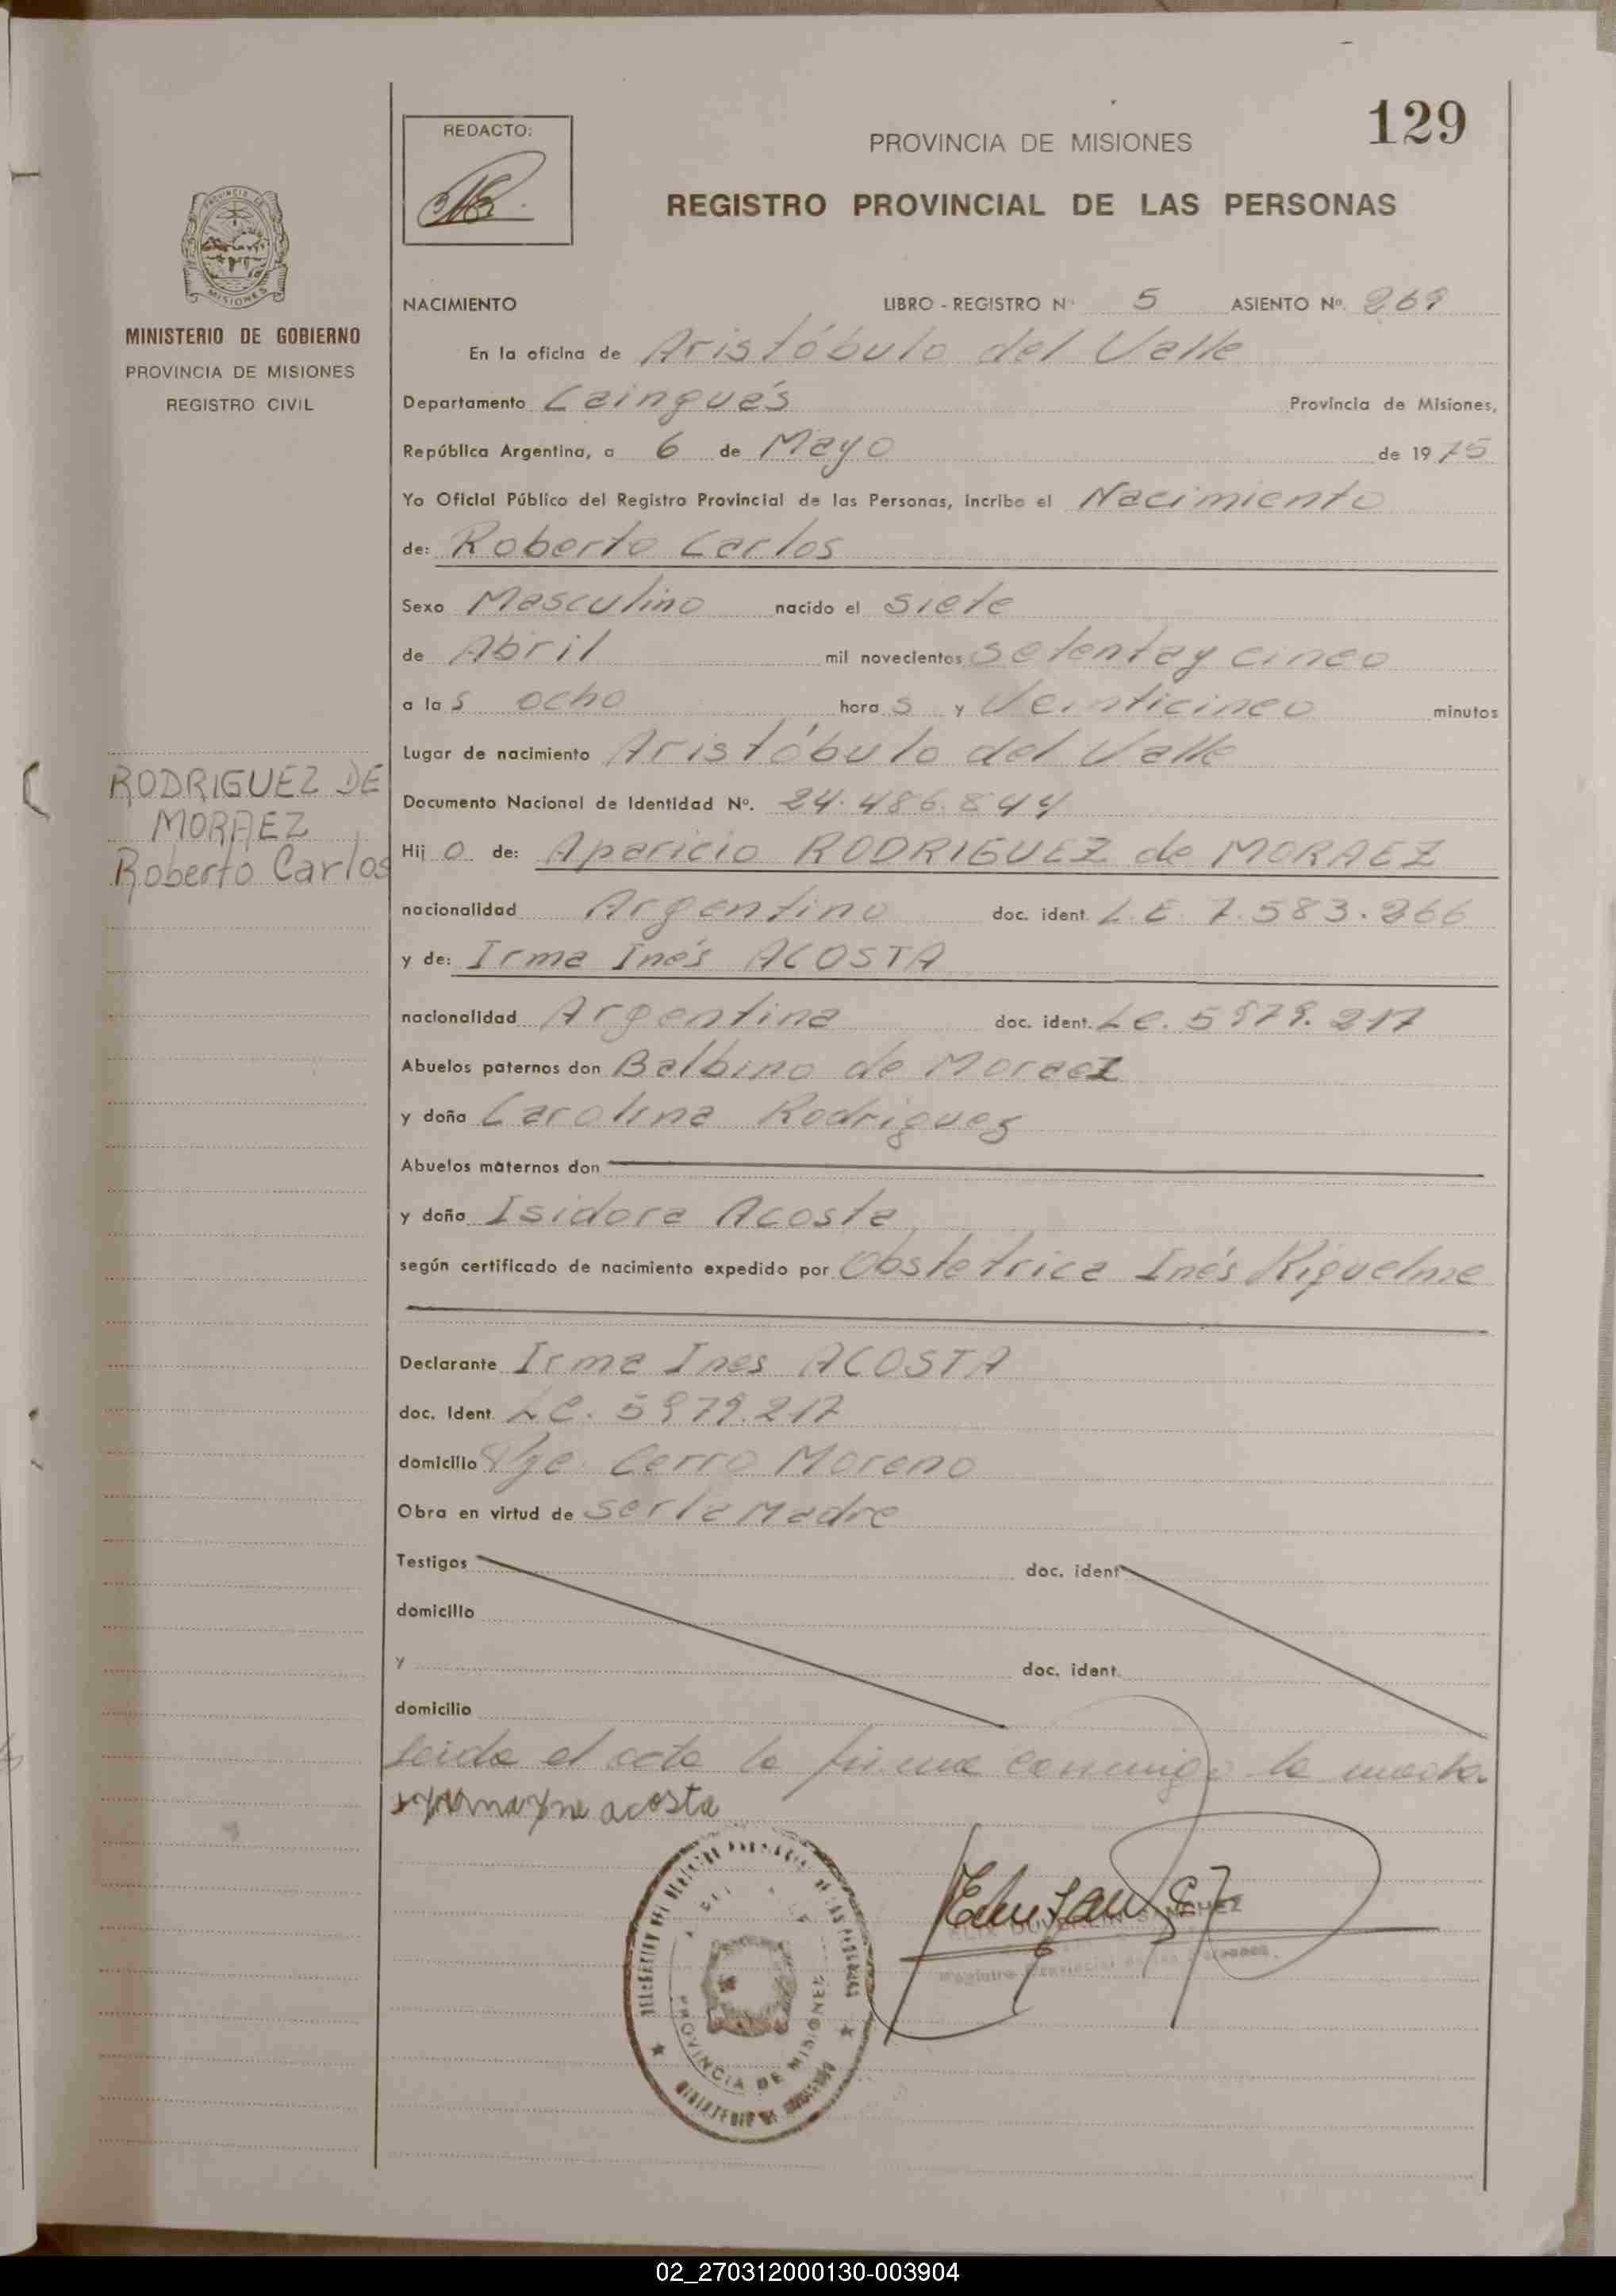 129
REDACTO:
PROVINCIA DE MISIONES
REGISTRO PROVINCIAL DE LAS PERSONAS
MINISTERIO DE GOBIERNO
PROVINCIA DE MISIONES
REGISTRO CIVIL
RODRIGUEZ DE
MORAEZ
Roberto Carlos
NACIMIENTO LIBRO - REGISTRO Nº 5 ASIENTO Nº. 269
En la oficina de Aristóbulo del Valle
Departamento Cainguás Provincia de Misiones,
República Argentina, a 6 de Mayo de 1975
Yo Oficial Público del Registro Provincial de las Personas, incribo el Nacimiento
de: Roberto Carlos
Sexo Masculino nacido el siete
de Abril mil novecientos setenta y cinco
a las ocho horas y Veinticinco minutos
Lugar de nacimiento Aristóbulo del Valle
Documento Nacional de Identidad Nº. 24.486.844
Hijo de: Aparicio RODRIGUEZ de MORAEZ
nacionalidad Argentino doc. ident. L.E. 7.583.266
y de: Irma Inés ACOSTA
nacionalidad Argentina doc. ident. L.C. 5979.217
Abuelos paternos don Balbino de Moraez
y doña Carolina Rodriguez
Abuelos maternos don
y doña Isidora Acosta
según certificado de nacimiento expedido por Obstetrica Inés Riquelme
Declarante Irma Ines ACOSTA
doc. Ident. L.C. 5979.217
domicilio Pje. Cerro Moreno
Obra en virtud de ser la Madre
Testigos doc. ident
domicilio
y doc. ident.
domicilio
Leida el acta la firma conmigo la madre.
acosta
SANCHEZ
Registro Provincial de las Personas.
PROVINCIA DE MISIONES
02_270312000130-003904